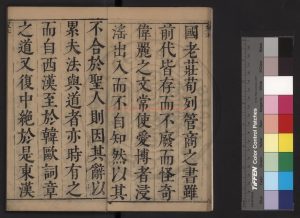 國老莊荀列管商之書雖
前代皆存而不廢而怪奇
偉麗之文常使愛博者浸
滛出入而不自知然以其
不合於聖人則因其辭以
累大法與道者亦時有之
而自西漢至於韓歐詞章
之道又復中絕於是東漢
TIFFEN Color Control Patches